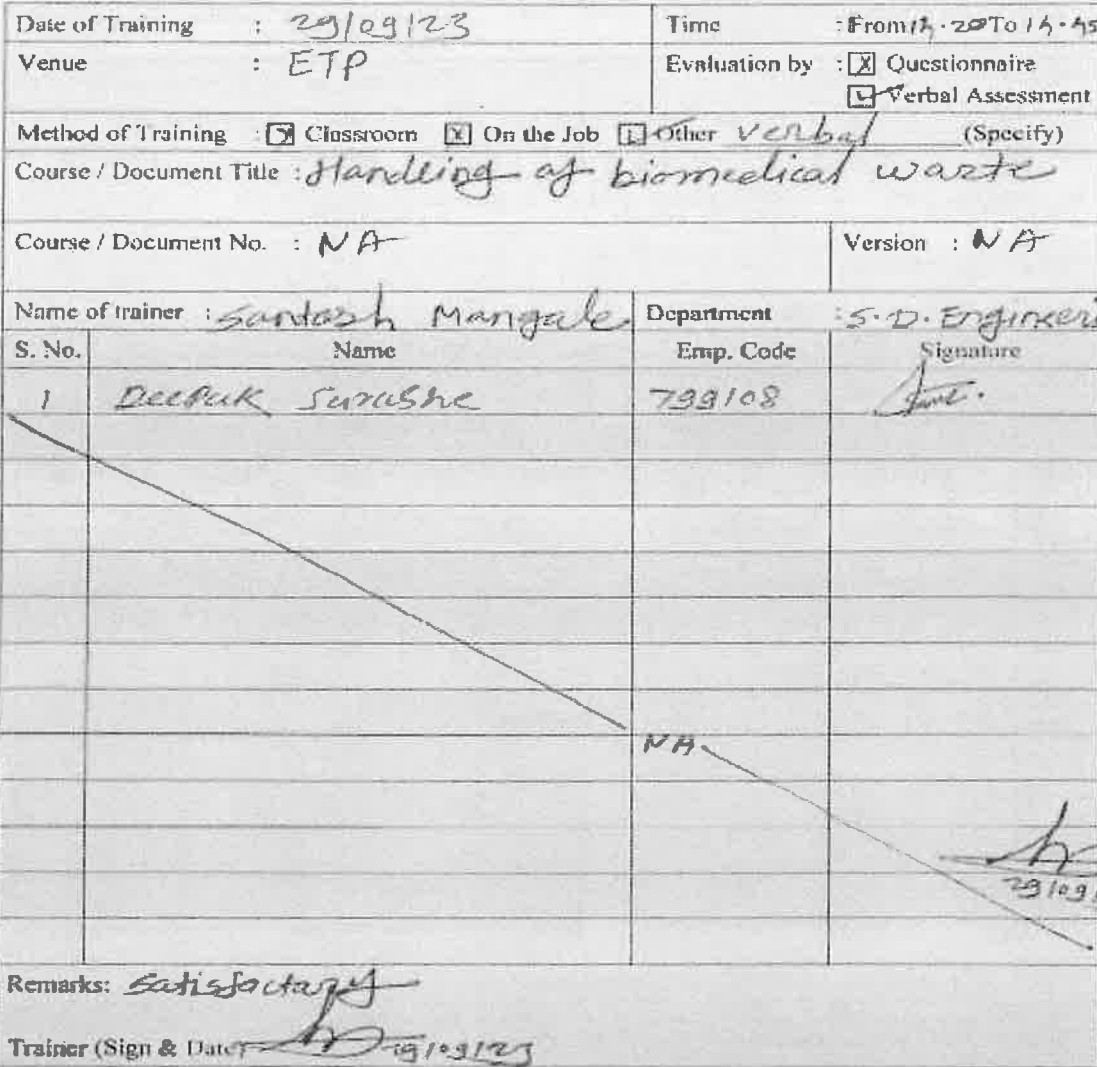 Date of Training : 29/09/23 Time : From 14.20 To 14.45
Venue : ETP Evaluation by : Questionnaire
Verbal Assessment
Method of Training : Classroom On the Job Other Verbal (Specify)
Course / Document Title : Handling of biomedical waste
Course / Document No. : NA Version : NA
Name of trainer : Santosh Mangale Department : S.D. Engineeri
S. No. Name Emp. Code Signature
1 Deepak Surashe 799108
NA
29/09/
Remarks: Satisfactory
Trainer (Sign & Date) 29/09/23